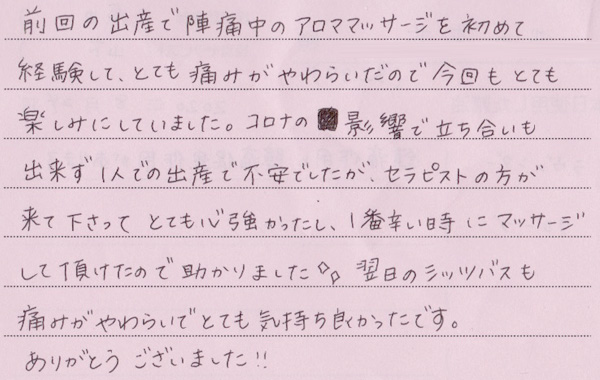 前回の出産で陣痛中のアロママッサージを初めて
経験して、とても痛みがやわらいだので今回もとても
楽しみにしていました。コロナの影響で立ち合いも
出来ず1人での出産で不安でしたが、セラピストの方が
来て下さってとても心強かったし、1番辛い時にマッサージ
して頂けたので助かりました 翌日のシッツバスも
痛みがやわらいでとても気持ち良かったです。
ありがとうございました!!